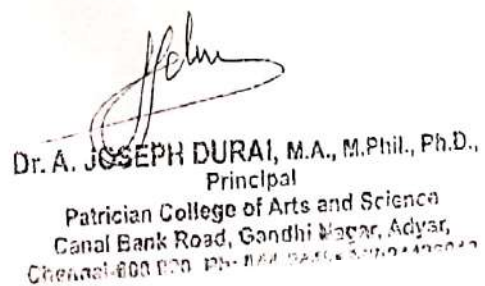 Dr. A. JOSEPH DURAI, M.A., M.Phil., Ph.D.,
Principal
Patrician College of Arts and Science
Canal Bank Road, Gandhi Nagar, Adyar,
Chennai-600 020. Ph: